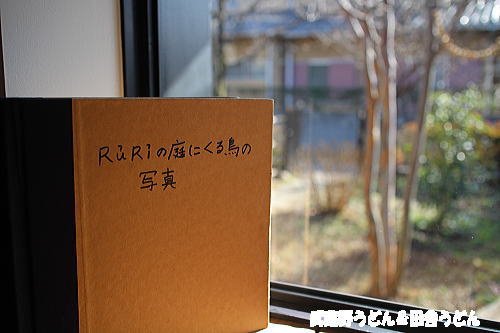 RüRiの庭にくる鳥の
写真
武蔵野うどん＆田舎うどん